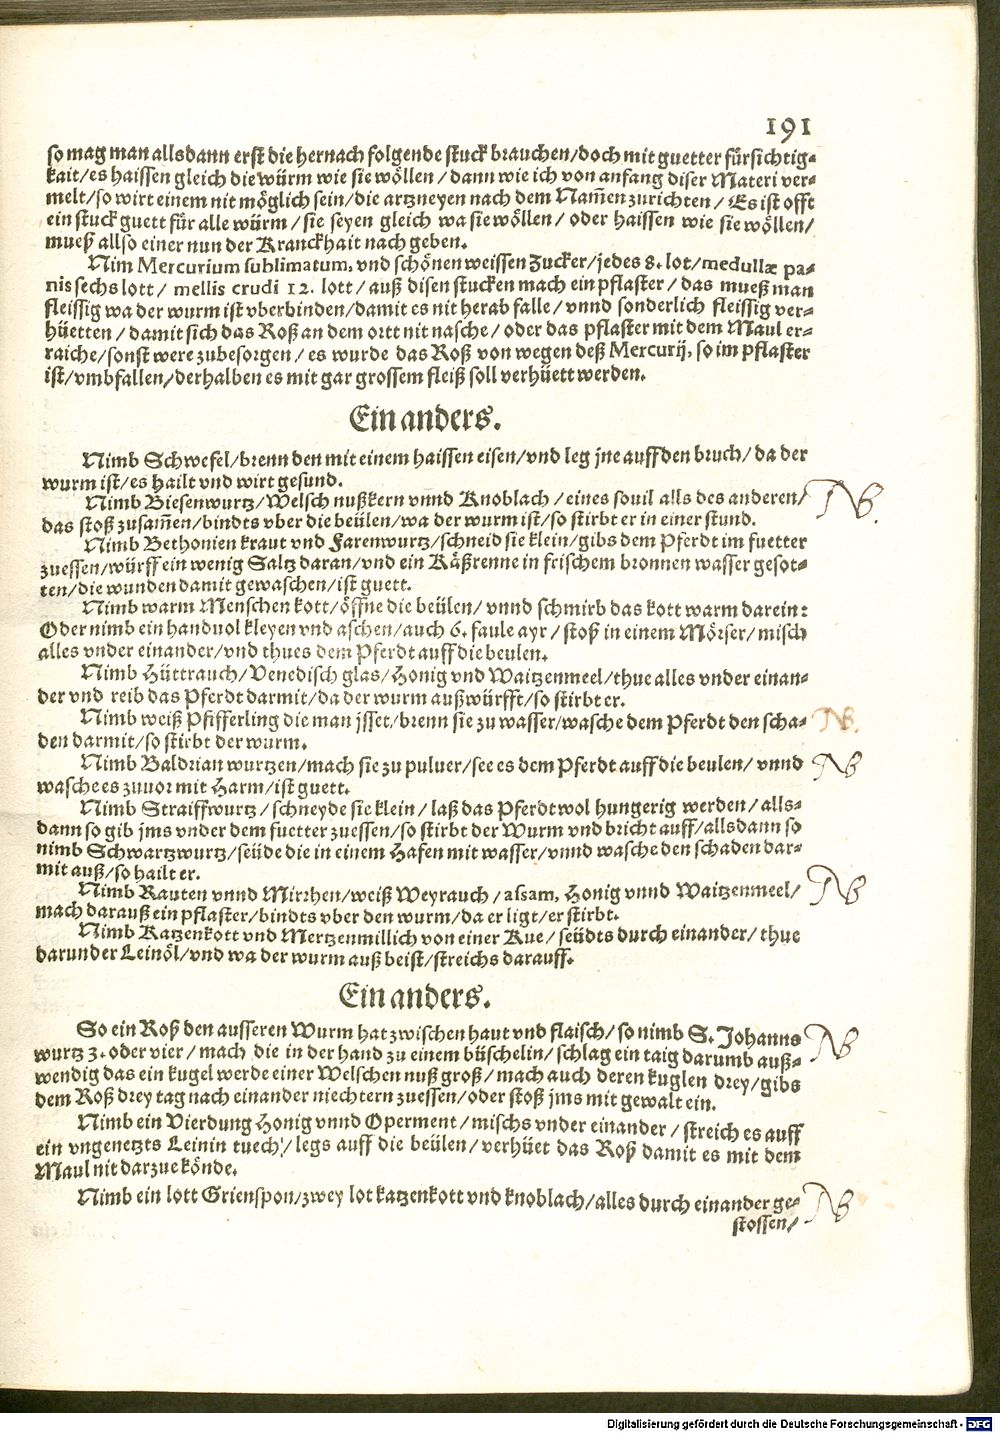 191
so mag man allsdann erst die hernach folgende stuck brauchen/doch mit guetter fürsichtig-
kait/es haissen gleich die würm wie sie wöllen/dann wie ich von anfang diser Materi ver-
melt/so wirt einem nit möglich sein/die artzneyen nach dem Nam̃en zurichten/Es ist offt
ein stuck guett für alle würm/sie seyen gleich wa sie wöllen/oder haissen wie sie wöllen/
mueß allso einer nun der Kranckhait nach geben.
Nim Mercurium sublimatum, vnd schönen weissen Zucker/jedes 8. lot/medullæ pa-
nis sechs lott/ mellis crudi 12. lott/auß disen stucken mach ein pflaster/das mueß man
fleissig wa der wurm ist vberbinden/damit es nit herab falle/vnnd sonderlich fleissig ver-
hüetten/damit sich das Roß an dem ortt nit nasche/oder das pflaster mit dem Maul er-
raiche/sonst were zubesorgen/es wurde das Roß von wegen deß Mercurij, so im pflaster
ist/vmbfallen/derhalben es mit gar grossem fleiß soll verhüett werden.
Ein anders.
Nimb Schwefel/brenn den mit einem haissen eisen/vnd leg jne auff den bruch/da der
wurm ist/es hailt vnd wirt gesund.
Nimb Biesenwurtz/Welsch nußkern vnnd Knoblach/eines souil alls des anderen/
NB.
das stoß zusam̃en/bindts vber die beülen/wa der wurm ist/so stirbt er in einer stund.
Nimb Bethonien kraut vnd Farenwurtz/schneid sie klein/gibs dem Pferdt im fuetter
zuessen/würff ein wenig Saltz daran/vnd ein Käßrenne in frischem bronnen wasser gesot-
ten/die wunden damit gewaschen/ist guett.
Nimb warm Menschen kott/öffne die beülen/vnnd schmirb das kott warm darein:
Oder nimb ein handuol kleyen vnd aschen/auch 6. faule ayr/stoß in einem Mörser/misch
alles vnder einander/vnd thues dem Pferdt auff die beulen.
Nimb Hüttrauch/Venedisch glas/Honig vnd Waitzenmeel/thue alles vnder einan-
der vnd reib das Pferdt darmit/da der wurm außwürfft/so stirbt er.
Nimb weiß Pfifferling die man jsset/brenn sie zu wasser/wasche dem Pferdt den scha-
NB.
den darmit/so stirbt der wurm.
Nimb Baldrian wurtzen/mach sie zu puluer/see es dem Pferdt auff die beulen/vnnd
NB
wasche es zuuor mit Harm/ist guett.
Nimb Straiffwurtz/schneyde sie klein/laß das Pferdt wol hungerig werden/alls-
dann so gib jms vnder dem fuetter zuessen/so stirbt der Wurm vnd bricht auff/allsdann so
nimb Schwartzwurtz/seüde die in einem Hafen mit wasser/vnnd wasche den schaden dar-
mit auß/so hailt er.
Nimb Rauten vnnd Mirrhen/weiß Weyrauch/asam, Honig vnnd Waitzenmeel/
NB
mach darauß ein pflaster/bindts vber den wurm/da er ligt/er stirbt.
Nimb Katzenkott vnd Mertzenmillich von einer Kue/seüdts durch einander/thue
darunder Leinöl/vnd wa der wurm auß beist/streichs darauff.
Ein anders.
So ein Roß den ausseren Wurm hat zwischen haut vnd flaisch/so nimb S. Johanns
NB
wurtz 3. oder vier/mach die in der hand zu einem büschelin/schlag ein taig darumb auß-
wendig das ein kugel werde einer Welschen nuß groß/mach auch deren kuglen drey/gibs
dem Roß drey tag nach einander niechtern zuessen/oder stoß jms mit gewalt ein.
Nimb ein Vierdung Honig vnnd Operment/mischs vnder einander/streich es auff
ein vngenetzts Leinin tuech/legs auff die beülen/verhüet das Roß damit es mit dem
Maul nit darzue könde.
Nimb ein lott Grienspon/zwey lot katzenkott vnd knoblach/alles durch einander ge-
NB
stossen/
Digitalisierung gefördert durch die Deutsche Forschungsgemeinschaft - DFG